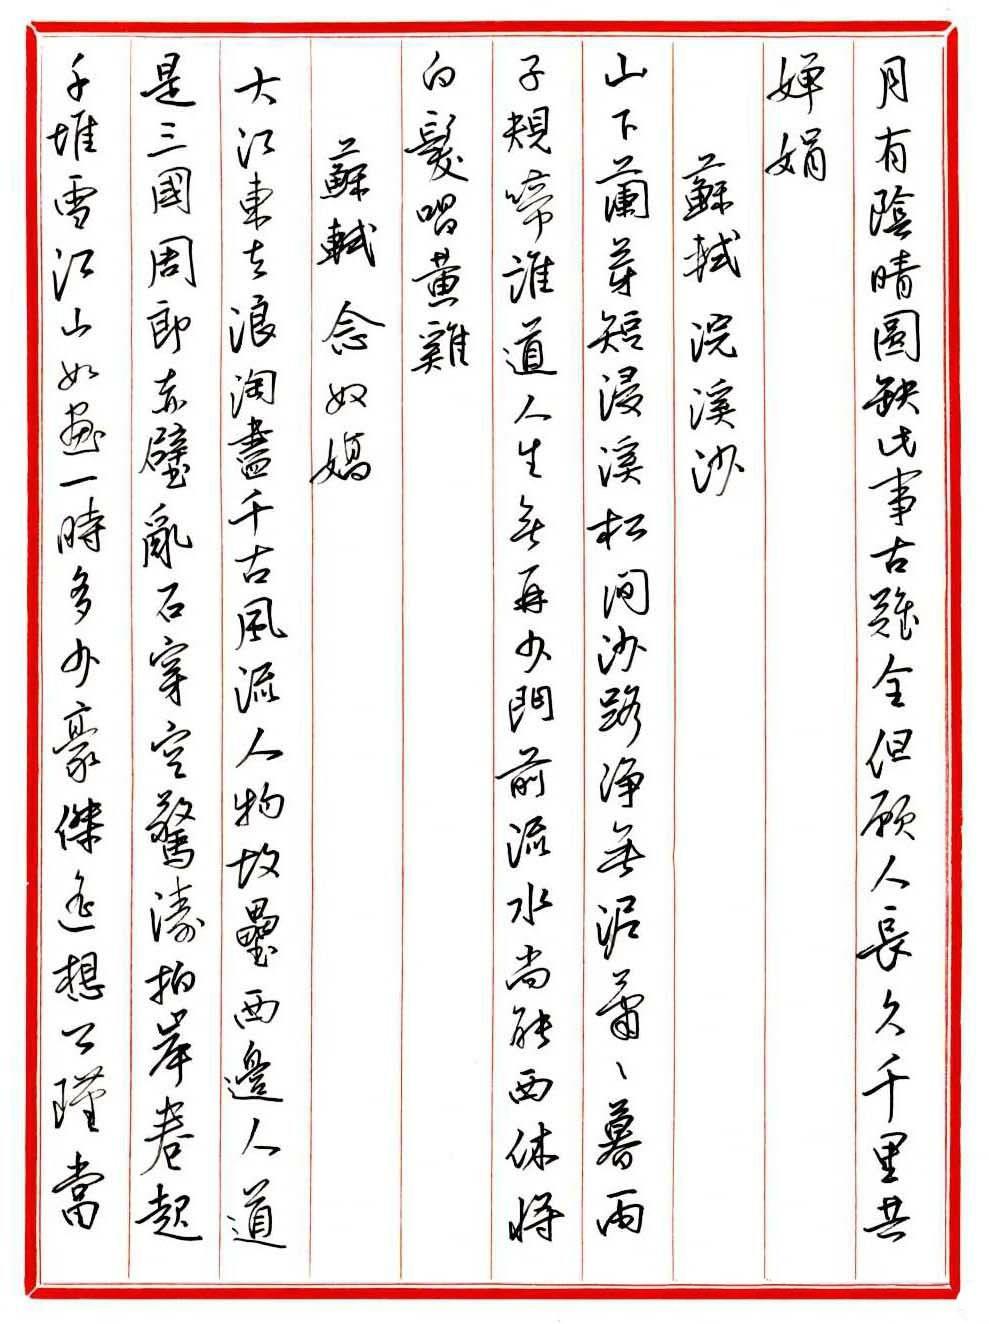 月有陰晴圓缺此事古難全但願人長久千里共
嬋娟
蘇軾浣溪沙
山下蘭芽短浸溪松間沙路淨無泥蕭、暮雨
子規啼誰道人生無再少門前流水尚能西休將
白髮唱黃雞
蘇軾念奴嬌
大江東去浪淘盡千古風流人物故壘西邊人道
是三國周郎赤壁亂石穿空驚濤拍岸卷起
千堆雪江山如畫一時多少豪傑遙想公瑾當